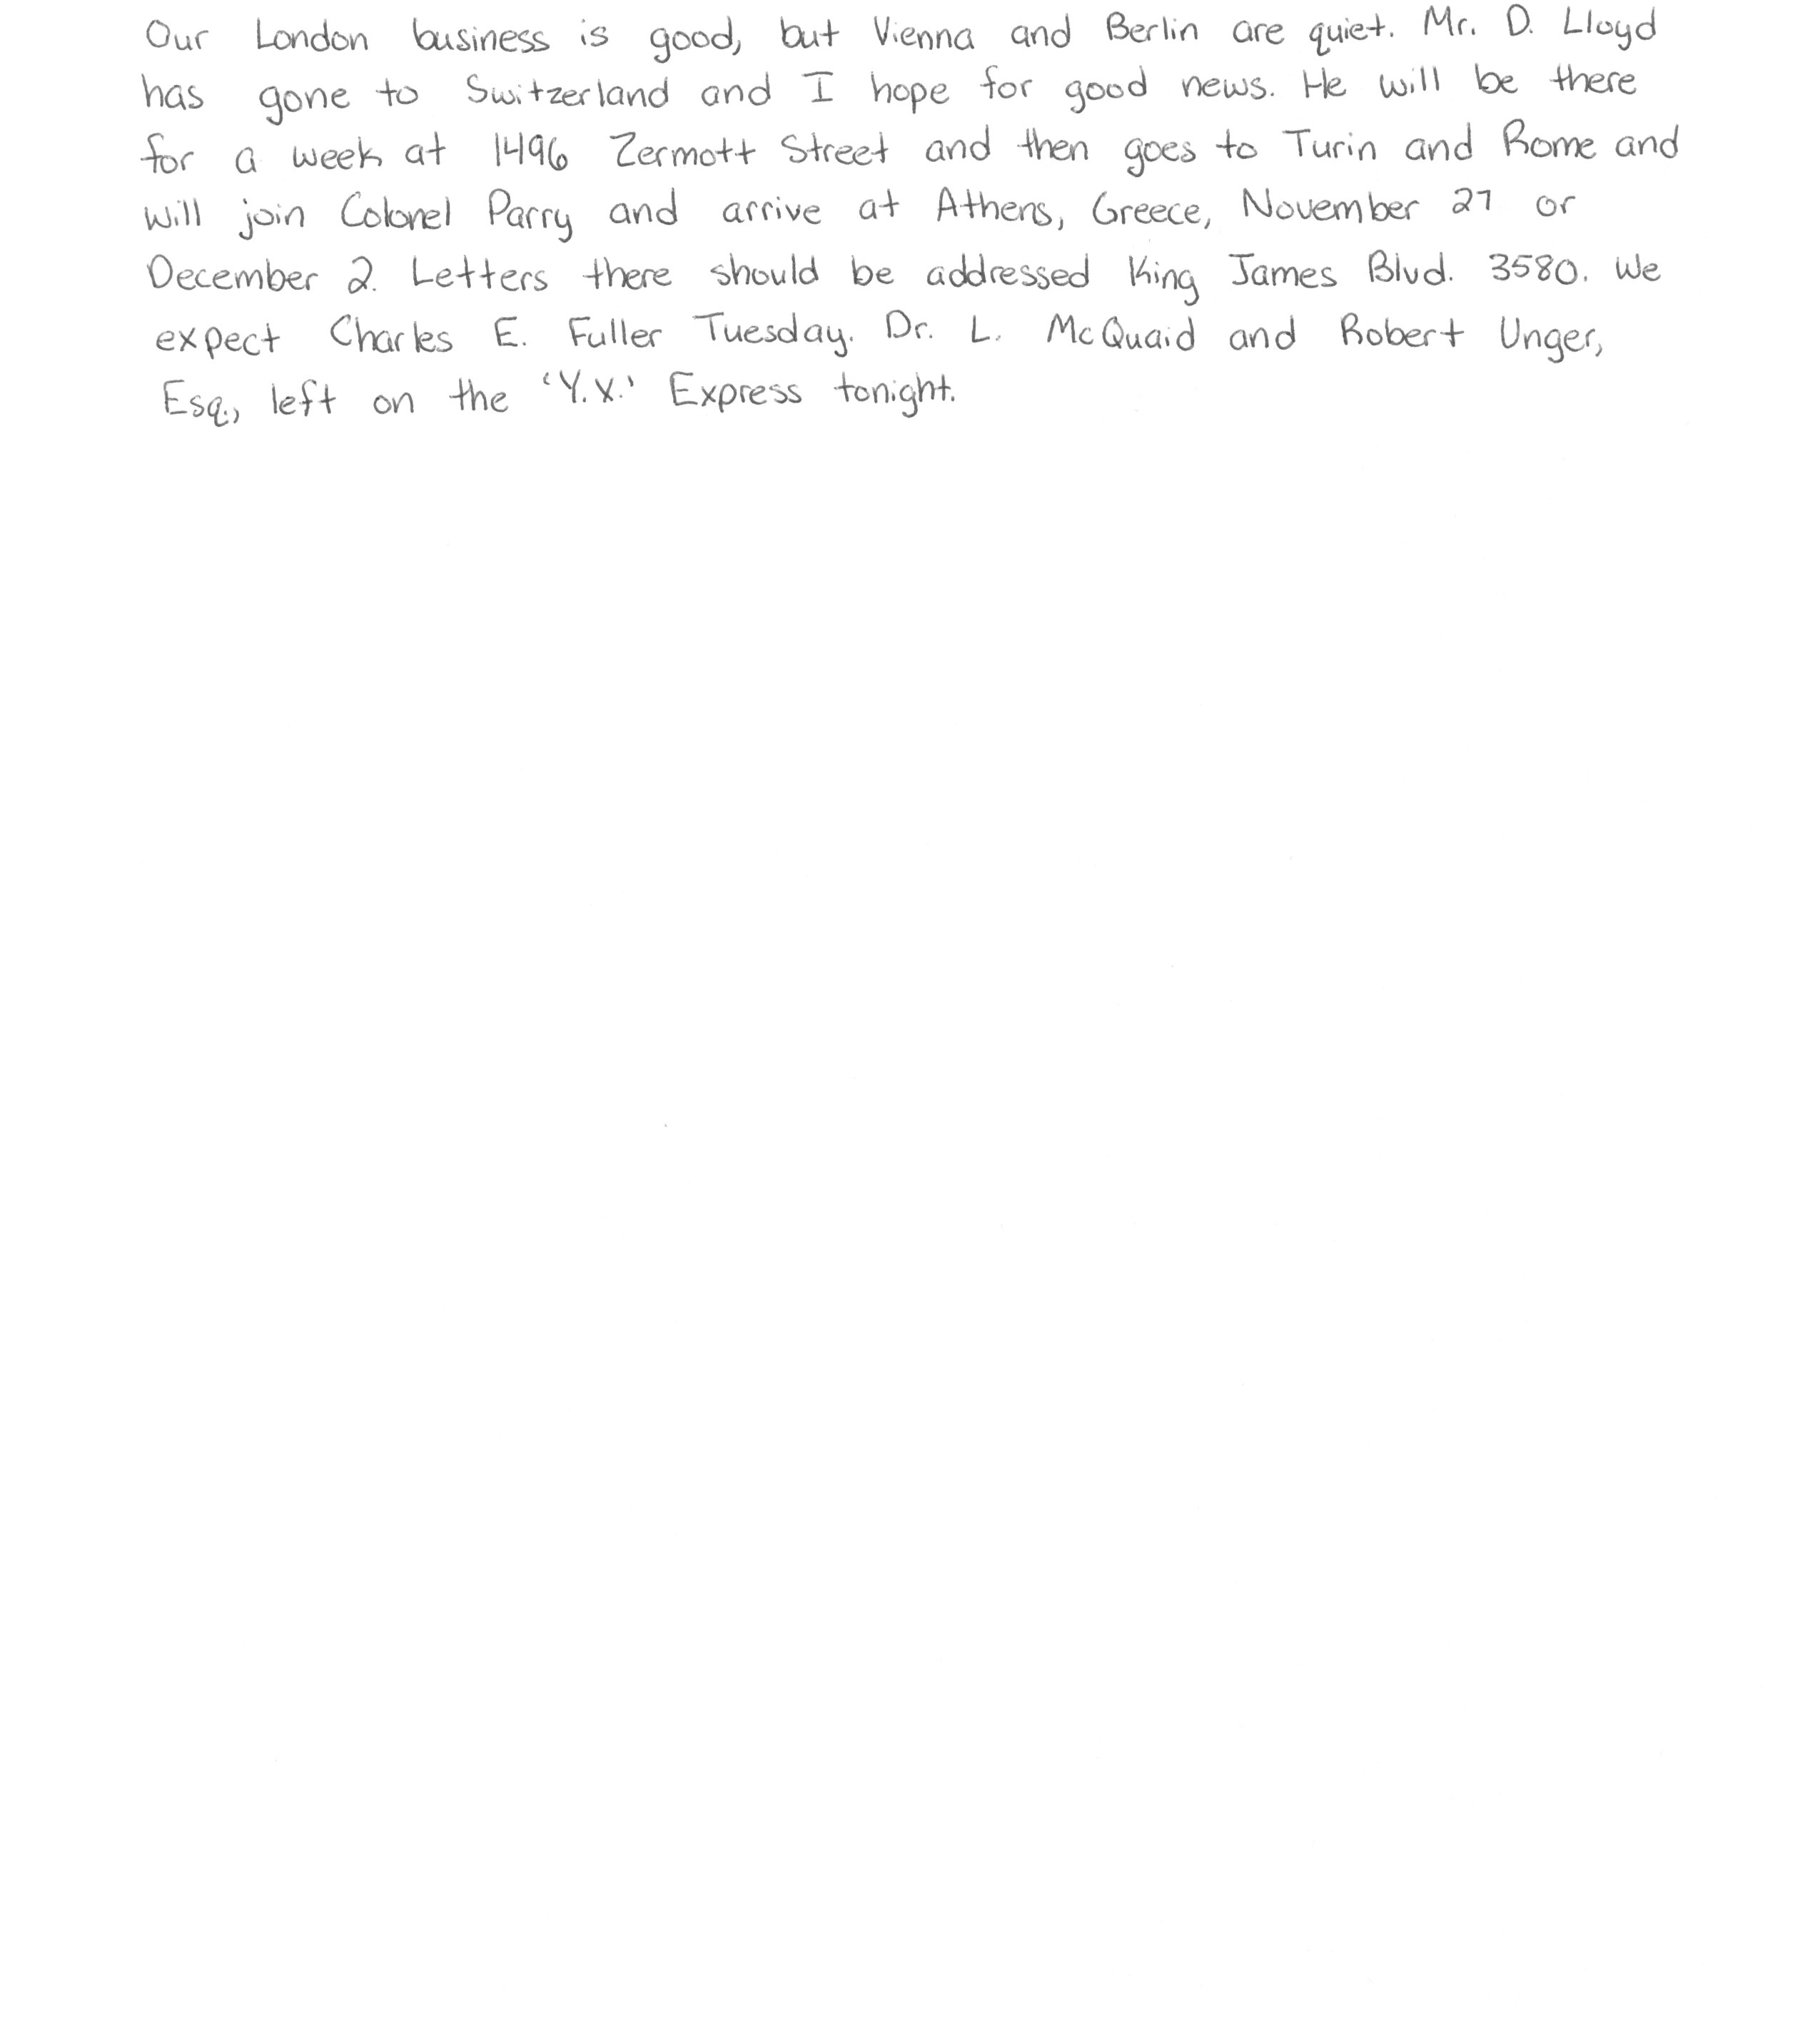 Our London business is good, but Vienna and Berlin are quiet. Mr. D. Lloyd
has gone to Switzerland and I hope for good news. He will be there
for a week at 1496 Zermott Street and then goes to Turin and Rome and
will join Colonel Parry and arrive at Athens, Greece, November 27 or
December 2. Letters there should be addressed King James Blvd. 3580. We
expect Charles E. Fuller Tuesday. Dr. L. McQuaid and Robert Unger,
Esq., left on the 'Y.X.' Express tonight.